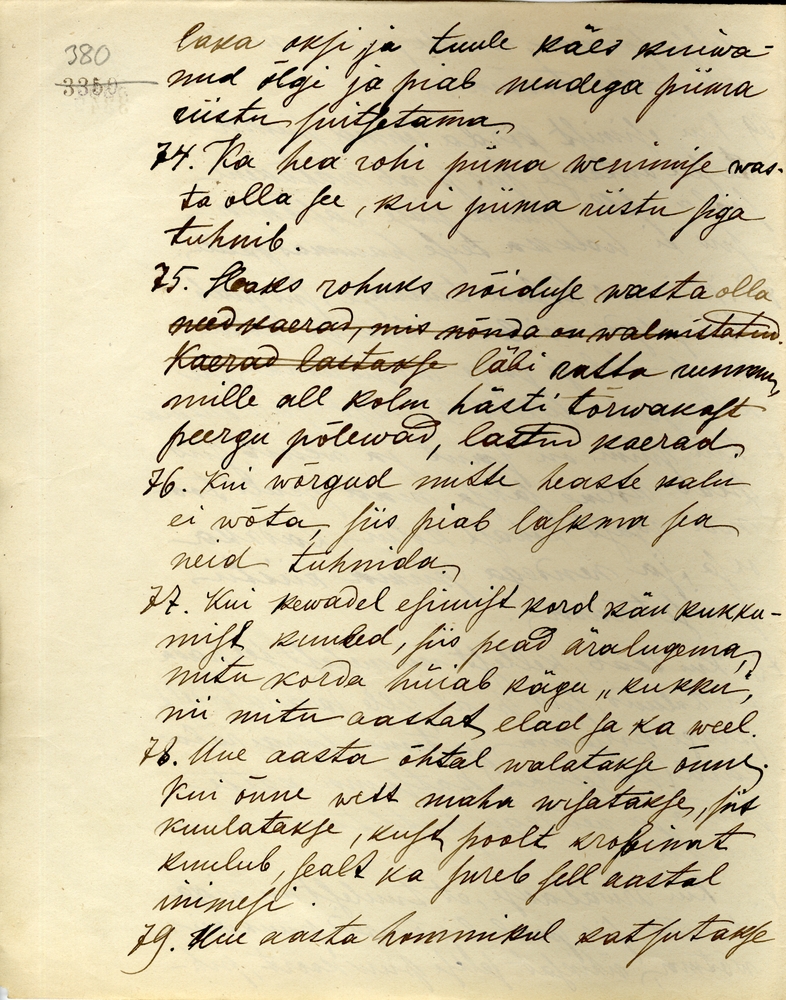 380
3350
laka oksi ja tuule käes kuiwa-
nud õlgi ja piab nendega piima
riistu suitsetama.
74. Ka hea rohi piima wenimise was-
ta olla see, kui piima riistu siga
tuhnib.
75. Heaks rohuks nõiduse wasta olla
need kaerad, mis nõnda on walmistatud.
Kaerad lastakse läbi ratta rummu,
mille all kolm hästi tõrwakast
peergu põlewad, lastud kaerad.
76. Kui wõrgud mitte heaste kalu
ei wõta, siis piab laskma sea
neid tuhnida.
77. Kui kewadel esimist kord käu kukku-
mist kuuled, siis pead äralugema,
mitu korda hüiab kägu „kukku",
nii mitu aastat elad sa ka weel.
78. Uue aasta õhtal walatakse õnne.
Kui õnne wett maha wisatakse, siis
kuulatakse, kust poolt krobinat
kuulub, sealt ka sureb sell aastal
inimesi.
79. Uue aasta hommikul katsutakse